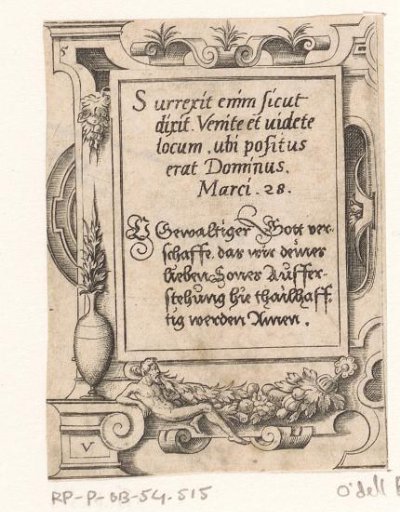 5
Surrexit enim sicut
dixit. Venite et uidete
locum. ubi positus
erat Dominus.
Marci. 28.
O Gewaltiger Gott ver-
schaffe. das wir deines
lieben Sones Auffer-
stehung hie thailhaff-
tig werden Amen.
V
RP-P-OB-54.515
O'dell